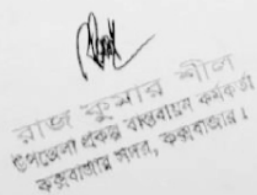 রাজ কুমার শীল
উপজেলা প্রকল্প বাস্তবায়ন কর্মকর্তা
কক্সবাজার সদর, কক্সবাজার।